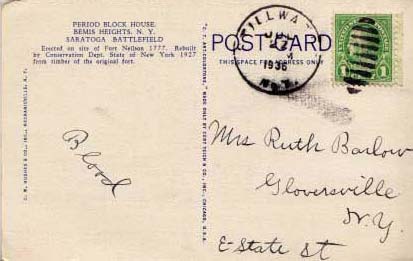 PERIOD BLOCK HOUSE
BEMIS HEIGHTS, N. Y.
SARATOGA BATTLEFIELD
Erected on site of Fort Neilson 1777. Rebuilt
by Conservation Dept. State of New York 1927
from timber of the original fort.
POST CARD
THIS SPACE FOR ADDRESS ONLY
STILLWA
1936
N.Y.
1 1
Blood
Mrs Ruth Barlow
Gloversville
N.Y.
E-State St
"C. T. ART-COLORTONE" MADE ONLY BY CURT TEICH & CO., INC., CHICAGO, U.S.A.